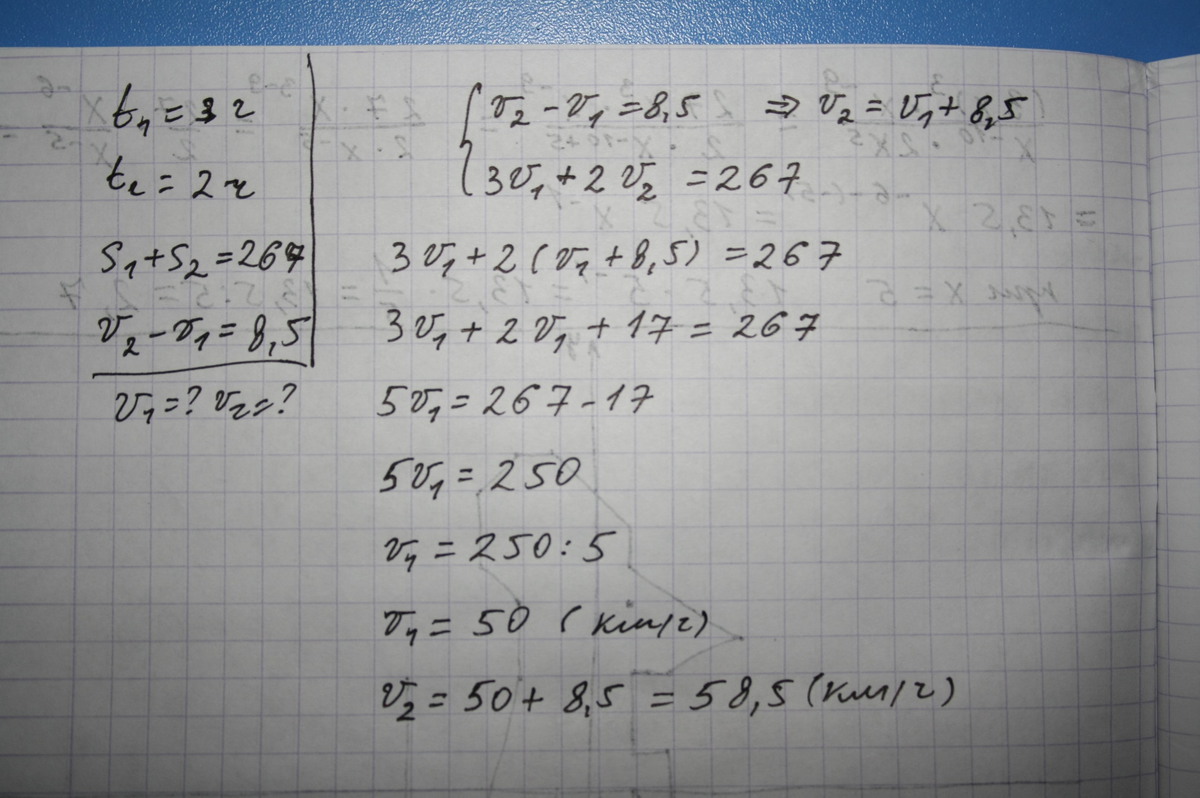 t₁ = 3 ч
t₂ = 2 ч
S₁ + S₂ = 267
v₂ - v₁ = 8,5
v₁ = ? v₂ = ?
v₂ - v₁ = 8,5 ⇒ v₂ = v₁ + 8,5
3v₁ + 2v₂ = 267
3v₁ + 2(v₁ + 8,5) = 267
3v₁ + 2v₁ + 17 = 267
5v₁ = 267 - 17
5v₁ = 250
v₁ = 250 : 5
v₁ = 50 (км/ч)
v₂ = 50 + 8,5 = 58,5 (км/ч)